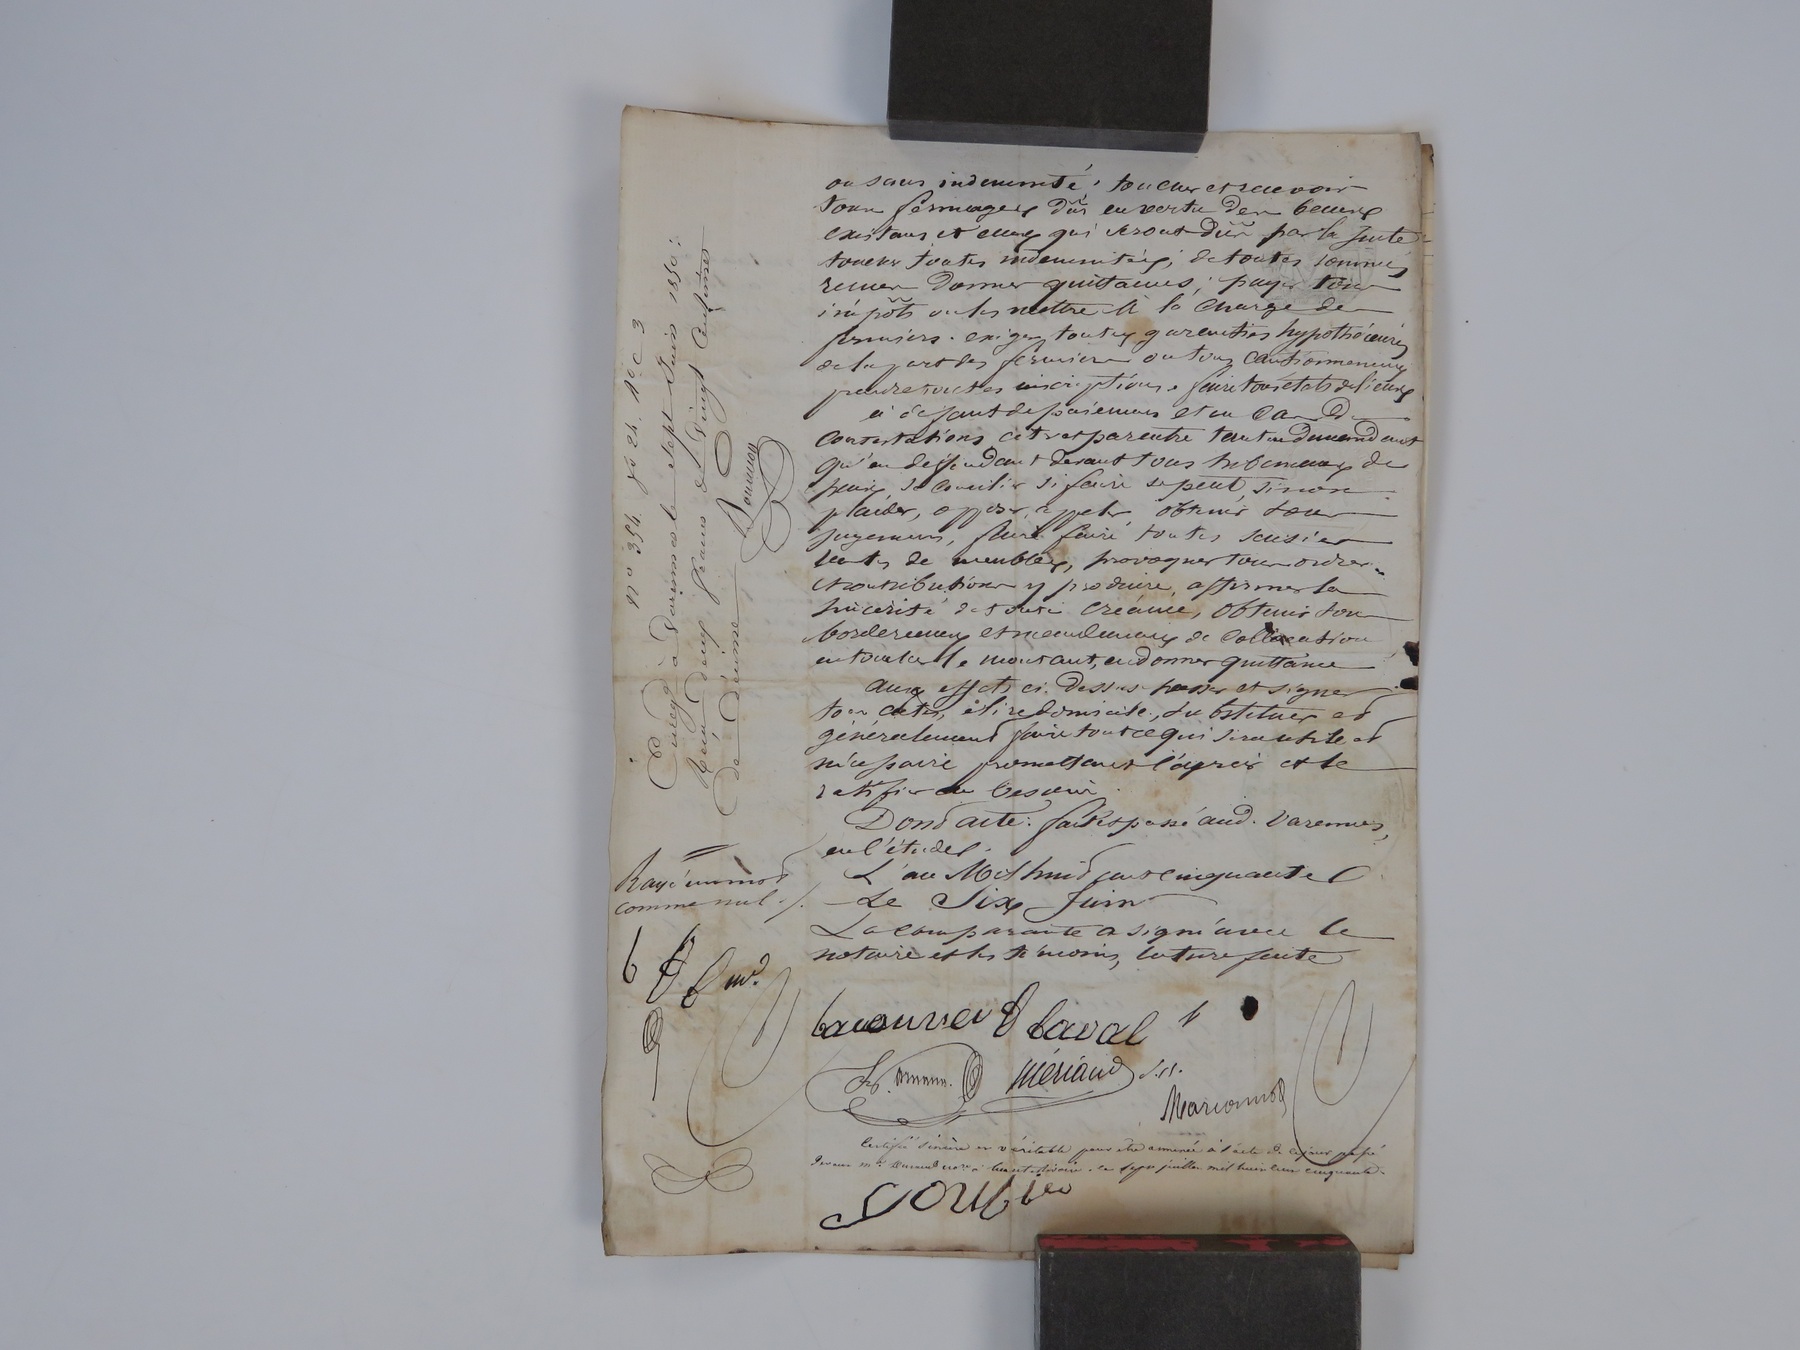 ou sans indemnité; toucher et recevoir
tous fermages dûs en vertu des beaux
existans et ceux qui seront dûs par la suite
toucher toutes indemnités; de toutes sommes
recues donner quittances; payer tous
impôts ou les mettre à la charge des
fermiers. exiger toutes garenties hypothécaires
de la part des fermiers ou tous cautionnemens
prendre toutes inscriptions, faire tous états de lieux
à défaut de paiemens et en cas de
contestations, citer et paraitre tant en demandant
qu'en deffendant devant tous tribunaux de
paix, se concilier si faire se peut, sinon
plaider, opposer, appeler obtenir tous
jugemens, faire faire toutes saisies
ventes de meubles, provoquer tous ordres
et contributions y produire, affirmer la
sincérité de toute créance, obtenir tous
bordereaux et mandemens de collocation
en toucher le montant, en donner quittance
aux effets ci-dessus passer et signer
tous actes, élire domicile, substituer et
généralement faire tout ce qui sera utile et
nécessaire promettant l'agréer et le
ratifier au besoin.
Dont acte: fait et passé aud. Varennes,
en l'étude.
L'an Mil huit cent cinquante
Le Six Juin
La comparante a signé avec le
notaire et les témoins, lecture faite
Laval
Mériaud
Marionnot
Certifié sincère et véritable pour être annexé à l'acte de ce jour passé
devant me notre à le sept juillet mil huit cent cinquante.
Rayé un mot
comme nul ./.
No 354. fo 24. Ro C 3
Enregé à Varennes le sept Juin 1850.
Reçu deux francs et vingt centimes
de décime